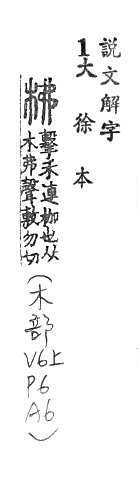 說文解字
1大徐本
柫
擊禾連枷也从
木弗聲敷勿切
(木部
V6上
P6
A6)